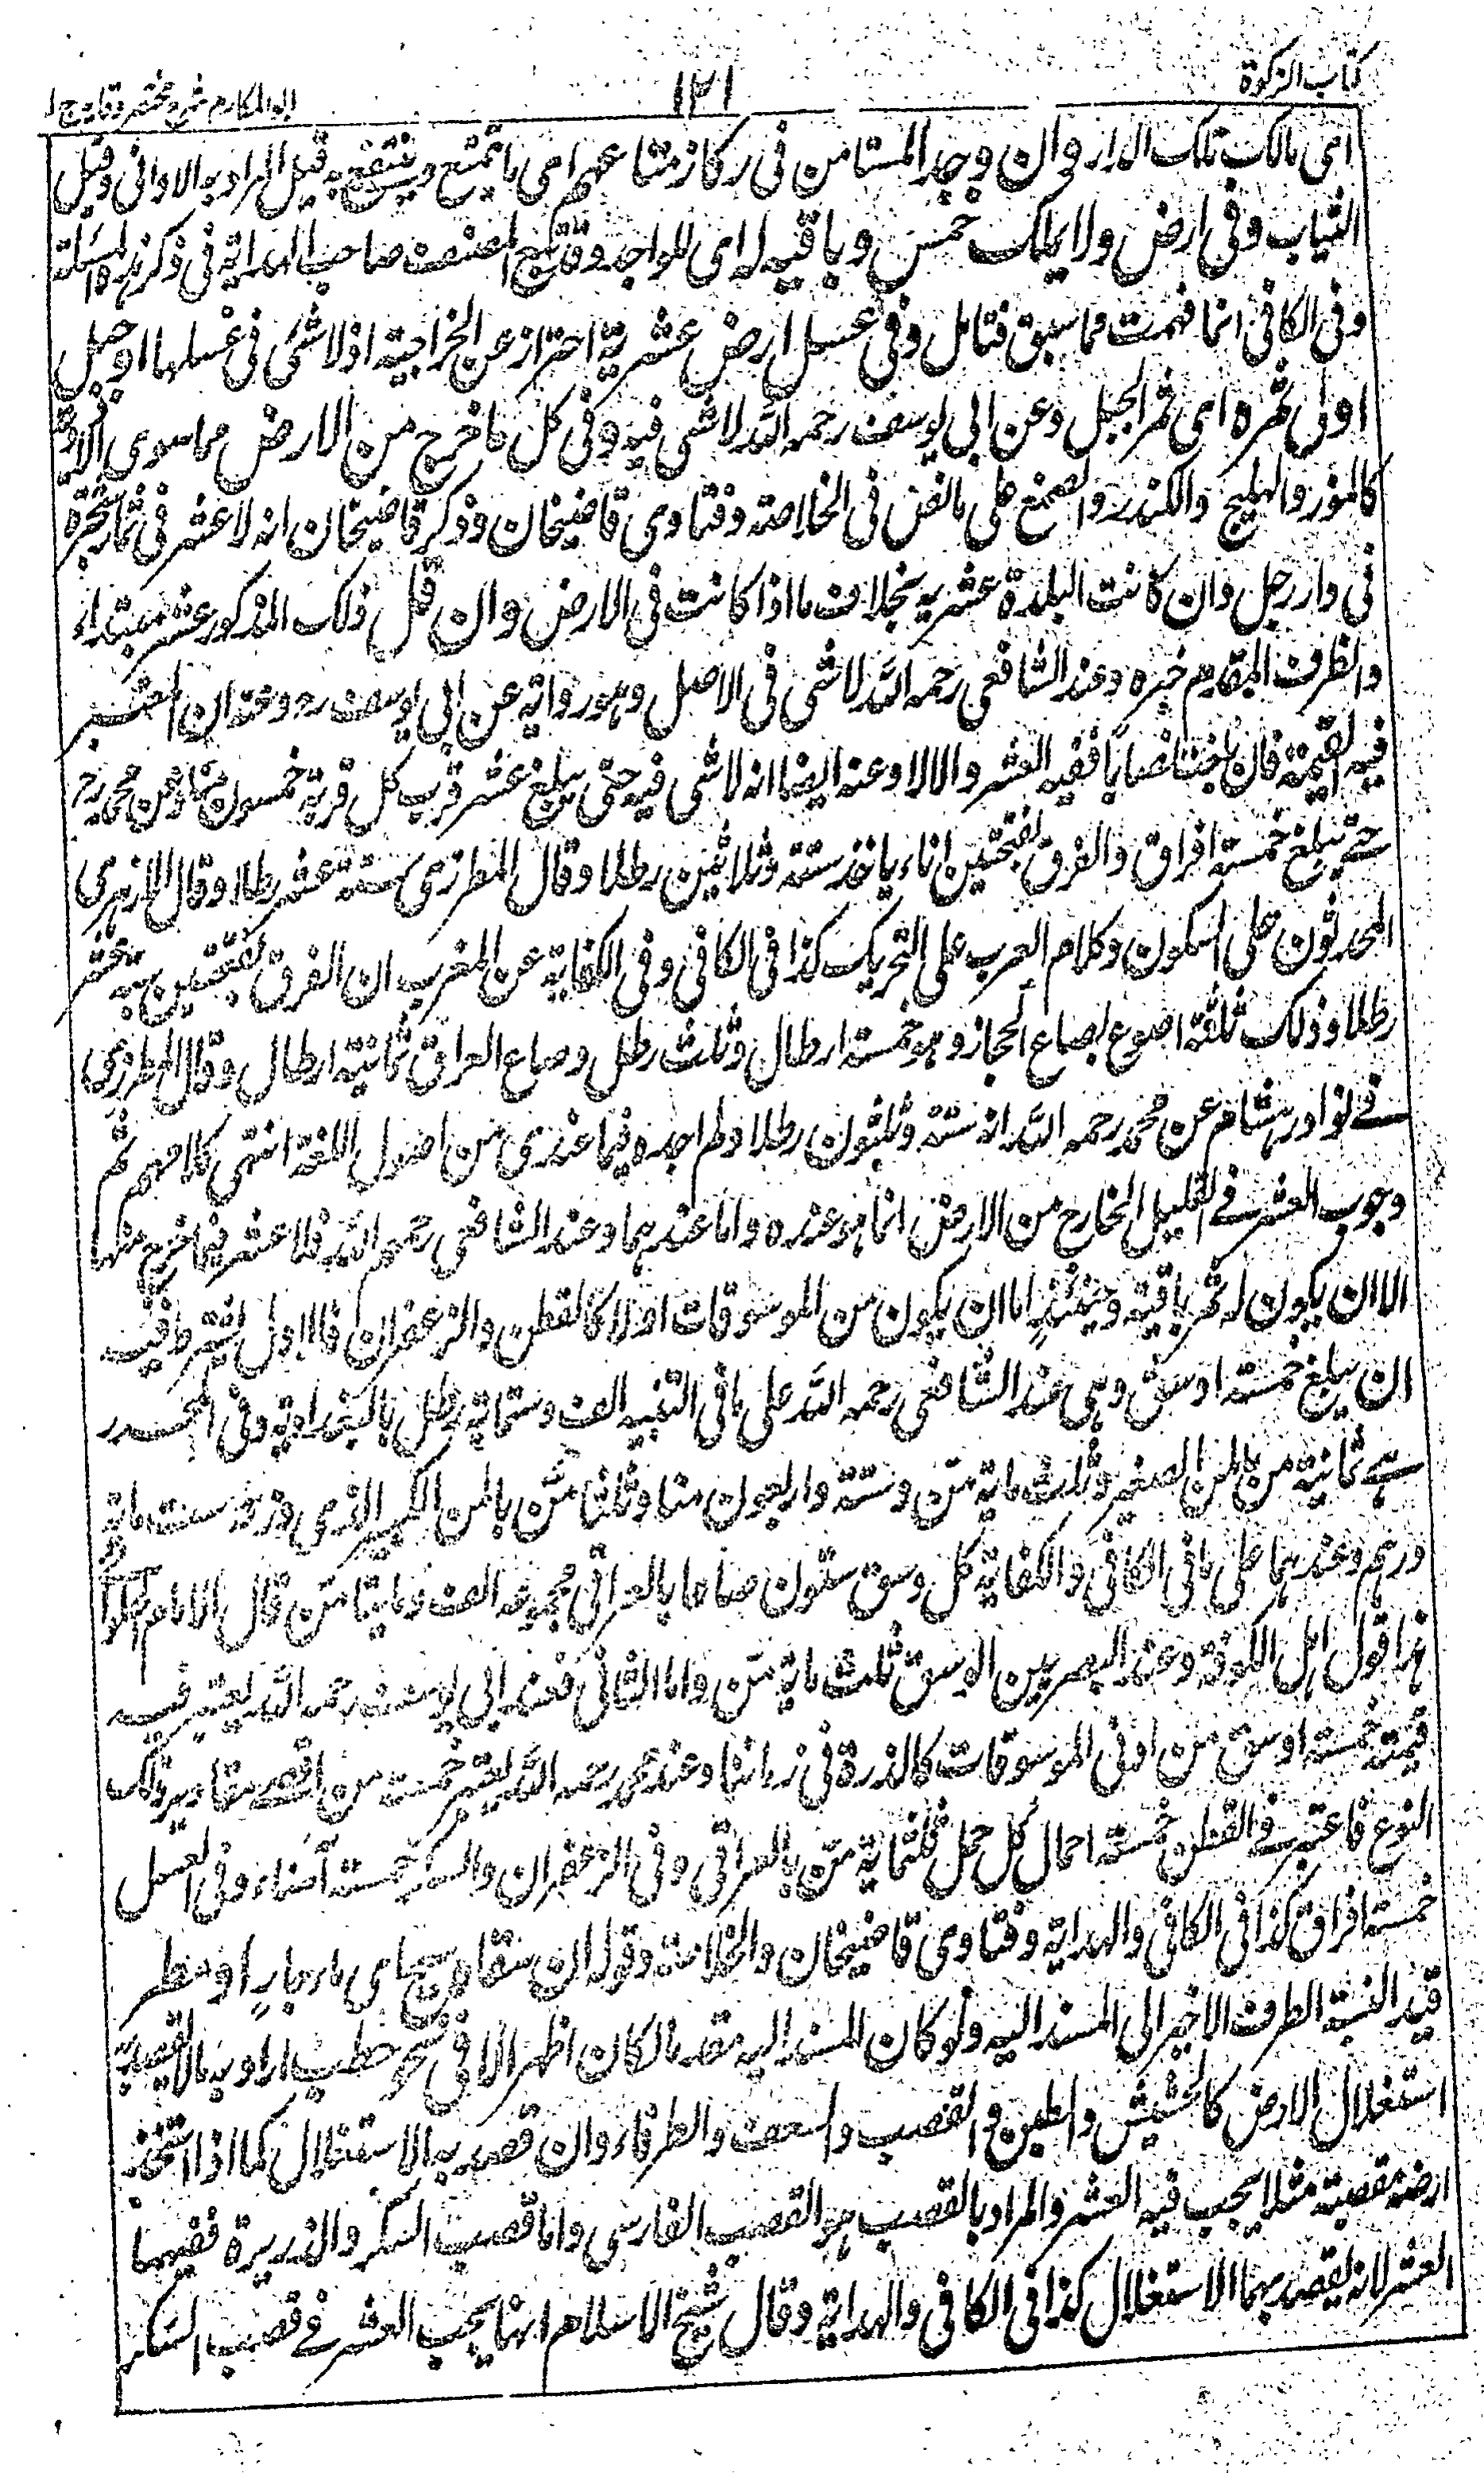 كتاب الزكوة
١٢١
ابو المكارم شرح مختصر وقايه ج ١
اى مالك تلك الدار وان وجد المستامن فى ركاز متاعهم اى ما يتمتع وينتفع به قيل المراد به الاوانى وقيل
الثياب وفى ارض ولا يملك خمس وباقيه له اى للواجد وقد المصنف صاحب الهداية فى ذكر هذه المسئلة
وفى الكافى انما فهمت مما سبق فتامل وفى عسل ارض عشرية احتراز عن الخراجية اذ لا شئ فى عسلها او جبل
او فى ثمره اى ثمر الجبل وعن ابى يوسف رحمه الله لا شئ فيه وفى كل ما خرج من الارض مما سوى الادوية
كالموز والهليلج والكندر والصمغ على ما نص فى الخلاصة وفتاوى قاضيخان وذكر قاضيخان انه لا عشر فى ثمار شجرة
فى دار رجل وان كانت البلدة عشريه بخلاف ما اذا كانت فى الارض وان قل ذلك المذكور عشر مبتداء
والظرف المقدم خبره وعند الشافعى رحمه الله لا شئ فى الاصل وهو رواية عن ابى يوسف رح وعنه ان المعتبر
فيه القيمة فان بلغت نصابا ففيه العشر والا لا وعنه ايضا انه لا شئ فيه حتى يبلغ عشر قرب كل قربة خمسون منا وعن محمد رح
حتے يبلغ خمسة افراق والفرق بفتحتين اناء ياخذ ستة وثلاثين رطلا وقال المطرزى ستة عشر رطلا وقال الازهرى
المحدثون على السكون وكلام العرب على التحريك كذا فى الكافى وفى الكفاية عن المغرب ان الفرق بفتحتين ستة عشر
رطلا وذلك ثلثة اصوع بصاع الحجاز وهو خمسة ارطال وثلث رطل وصاع العراق ثمانية ارطال وقال المطرزى
فے نوادر هشام عن محمد رحمه الله انه ستة وثلثون رطلا ولم اجده فيما عندى من اصول اللغة انتهى كلامهم ثم
وجوب العشر فے القليل الخارج من الارض انما هو عنده واما عندهما وعند الشافعى رحمهم الله فلا عشر فيما خرج منها
الا ان يكون له ثمر باقية وحينئذ اما ان يكون من الموسوقات او لا كالقطن والزعفران فالاول يشترط فيه
ان يبلغ خمسة اوسق وهى عند الشافعى رحمه الله على ما فى التنبيه الف وستمائة رطل بالبغدادية وفى المحرر
هے ثمانية من بالمن الصغير وثلث ماية من وستة واربعون منا وثلثا من بالمن الكبير الذى وزنه ست ماية
درهم وعندهما على ما فى الكافى والكفاية كل وسق ستون صاعا بالعراقى مجموعه الف ومايتا من قال الامام الحلوانى
هذا قول اهل الكوفة وعند البصريين الوسق ثلث ماية من واما الثانى فعند ابى يوسف رحمه الله يعتبر فيه
قيمة خمسة اوسق من ادنى الموسوقات كالذرة فى زماننا وعند محمد رحمه الله يعتبر خمسة من اقصے مقادير ذلك
النوع فاعتبر فے القطن خمسة احمال كل حمل ثلثماية من بالعراقى وفى الزعفران والسكر خمسة أمناء وفى العسل
خمسة افراق كذا فى الكافى والهداية وفتاوى قاضيخان والخلاصة وقوله ان سقاه سيح اى ماء جارٍ او مطر
قيد النسبة الظرف الاخير الى المسند اليه ولو كان المسند اليه مقدما لكان اظهر الا فى نحو حطب اراد به ما لا يقصد به
استغلال الارض كالحشيش والطبن والقصب والسعف والطرفاء وان قصد به الاستغلال كما اذا اتخذ
ارضه مقصبة مثلا يجب فيه العشر والمراد بالقصب هو القصب الفارسى واما قصب السكر والذريرة ففيهما
العشر لانه يقصد بهما الاستغلال كذا فى الكافى والهداية وقال شيخ الاسلام انما يجب العشر فے قصب السكر